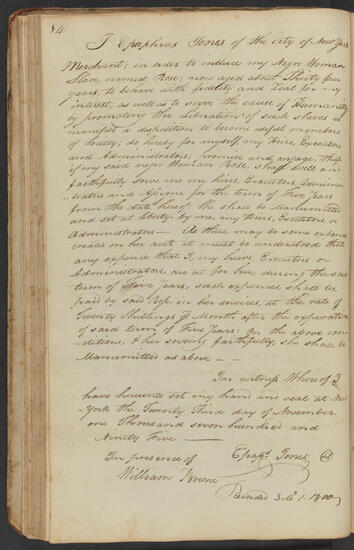 84
I Epaphras Jones of the City of New York
Merchant; in order to induce my Negro Woman
Slave named Rose; now aged about Thirty four
years, to behave with fidelity and Zeal for my
interest, as well as to serve the cause of Humanity
by promoting the Liberation of such Slaves as
manifest a disposition to become useful members
of Society; do hereby for myself, my Heirs, Executors
and Administrators, promise and engage, That
if my said negro Woman Rose, shall well and
faithfully serve me my heirs, Executors Adminis-
trators and Assigns for the term of Five Years
from the date hereof She shall be Manumitted
and set at liberty by me, my Heirs, Executors or
Administrators — As there may be some expence
created on her acct. it must be understood that
any expence that I, my heirs, Executors or
Administrators, are at for her, during the said
term of Five Years, such expences shall be
paid by said Rose, in her services, at the rate of
Twenty Shillings Month after the expiration
of said term of Five Years: On the above con-
ditions, & her serving faithfully, she shall be
Manumitted as above —
In witness Whereof I
have hereunto set my hand and seal at New
York the Twenty Third day of November
one Thousand seven hundred and
Ninety Five —
In presence of Epaps. Jones
William Kowne
Recorded 1800